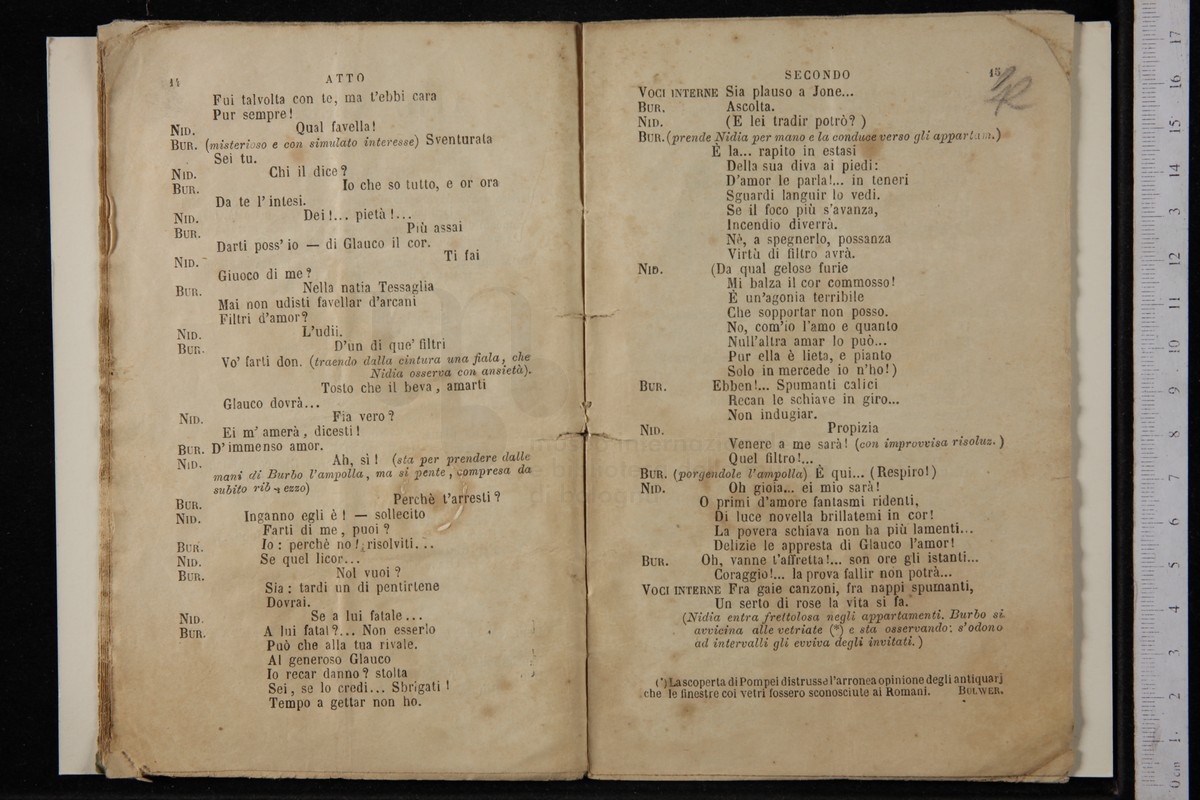 14
ATTO
Fui talvolta con te, ma t'ebbi cara
Pur sempre!
NID. Qual favella!
BUR. (misterioso e con simulato interesse) Sventurata
Sei tu.
NID. Chi il dice?
BUR. Io che so tutto, e or ora
Da te l'intesi.
NID. Dei!... pietà!...
BUR. Più assai
Darti poss' io — di Glauco il cor.
NID. Ti fai
Giuoco di me?
BUR. Nella natia Tessaglia
Mai non udisti favellar d'arcani
Filtri d'amor?
NID. L'udii.
BUR. D'un di que' filtri
Vo' farti don. (traendo dalla cintura una fiala, che
Nidia osserva con ansietà).
Tosto che il beva, amarti
Glauco dovrà...
NID. Fia vero?
Ei m' amerà, dicesti!
BUR. D' immenso amor.
NID. Ah, sì! (sta per prendere dalle
mani di Burbo l'ampolla, ma si pente, compresa da
subito rib ezzo)
BUR. Perchè t'arresti?
NID. Inganno egli è! — sollecito
Farti di me, puoi?
BUR. Io: perchè no! risolviti...
NID. Se quel licor...
BUR. Nol vuoi?
Sia: tardi un di pentirtene
Dovrai.
NID. Se a lui fatale...
BUR. A lui fatal?... Non esserlo
Può che alla tua rivale.
Al generoso Glauco
Io recar danno? stolta
Sei, se lo credi... Sbrigati!
Tempo a gettar non ho.
SECONDO
15
VOCI INTERNE Sia plauso a Jone...
BUR. Ascolta.
NID. (E lei tradir potrò?)
BUR. (prende Nidia per mano e la conduce verso gli appartam.)
È la... rapito in estasi
Della sua diva ai piedi:
D'amor le parla!... in teneri
Sguardi languir lo vedi.
Se il foco più s'avanza,
Incendio diverrà.
Nè, a spegnerlo, possanza
Virtù di filtro avrà.
NID. (Da qual gelose furie
Mi balza il cor commosso!
È un'agonia terribile
Che sopportar non posso.
No, com'io l'amo e quanto
Null'altra amar lo può...
Pur ella è lieta, e pianto
Solo in mercede io n'ho!)
BUR. Ebben!... Spumanti calici
Recan le schiave in giro...
Non indugiar.
NID. Propizia
Venere a me sarà! (con improvvisa risoluz.)
Quel filtro!...
BUR. (porgendole l'ampolla) È qui... (Respiro!)
NID. Oh gioia... ei mio sarà!
O primi d'amore fantasmi ridenti,
Di luce novella brillatemi in cor!
La povera schiava non ha più lamenti...
Delizie le appresta di Glauco l'amor!
BUR. Oh, vanne t'affretta!... son ore gli istanti...
Coraggio!... la prova fallir non potrà...
VOCI INTERNE Fra gaie canzoni, fra nappi spumanti,
Un serto di rose la vita si fa.
(Nidia entra frettolosa negli appartamenti. Burbo si
avvicina alle vetriate (*) e sta osservando: s'odono
ad intervalli gli evviva degli invitati.)
(*) La scoperta di Pompei distrusse l'arronea opinione degli antiquarj
che le finestre coi vetri fossero sconosciute ai Romani. BULWER.